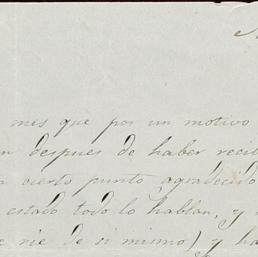 mes que por un motivo
despues de haber reci
cierto punto agradecido
estado todo lo hablan, y
rie de si mismo) y ha